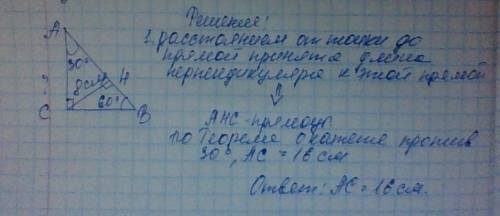 Решение:
1. расстоянием от точки до
прямой принята длина
перпендикуляра к этой прямой
A
30°
8см
H
?
C
60°
B
AHC - прямоуг.
по Теореме о катете против
30°, AC = 16 см
Ответ: AC = 16 см.